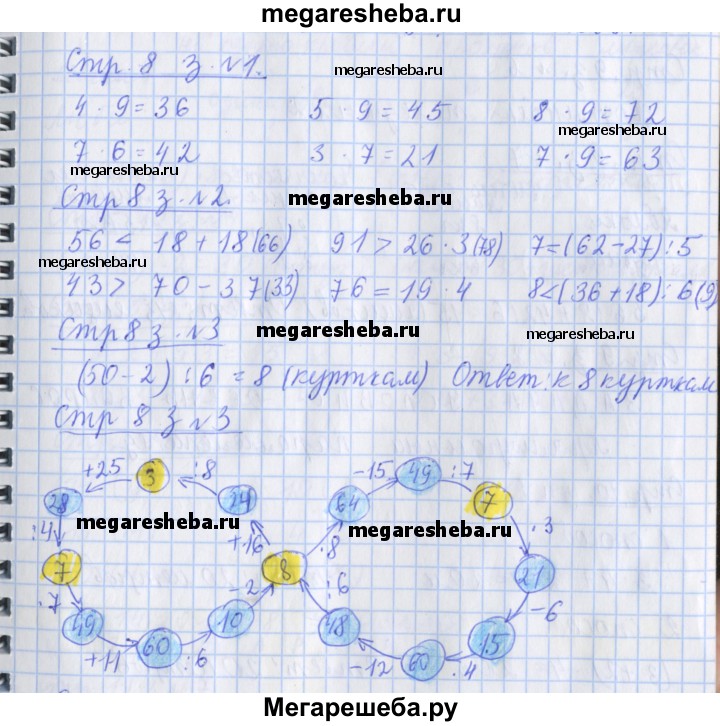 megaresheba.ru
Стр. 8 з. №1.
megaresheba.ru
4 · 9 = 36 5 · 9 = 45 8 · 9 = 72
megaresheba.ru
7 · 6 = 42 3 · 7 = 21 7 · 9 = 63
megaresheba.ru
Стр 8 з. №2.
megaresheba.ru
56 < 18 + 18 (66) 91 > 26 · 3 (78) 7 = (62 - 27) : 5
megaresheba.ru megaresheba.ru
43 > 70 - 37 (33) 76 = 19 · 4 8 < (36 + 18) : 6 (9)
Стр 8 з. №3
megaresheba.ru megaresheba.ru
(50 - 2) : 6 = 8 (курткам) Ответ: к 8 курткам
Стр 8 з №3
+25 3 :8 -15 49 :7
28 24 64 7
megaresheba.ru megaresheba.ru
:4 +16 ·8 :3
7 8 21
:7 -2 :6 -6
49 10 48 15
+11 60 :6 -12 60 ·4
Мегарешеба.ру